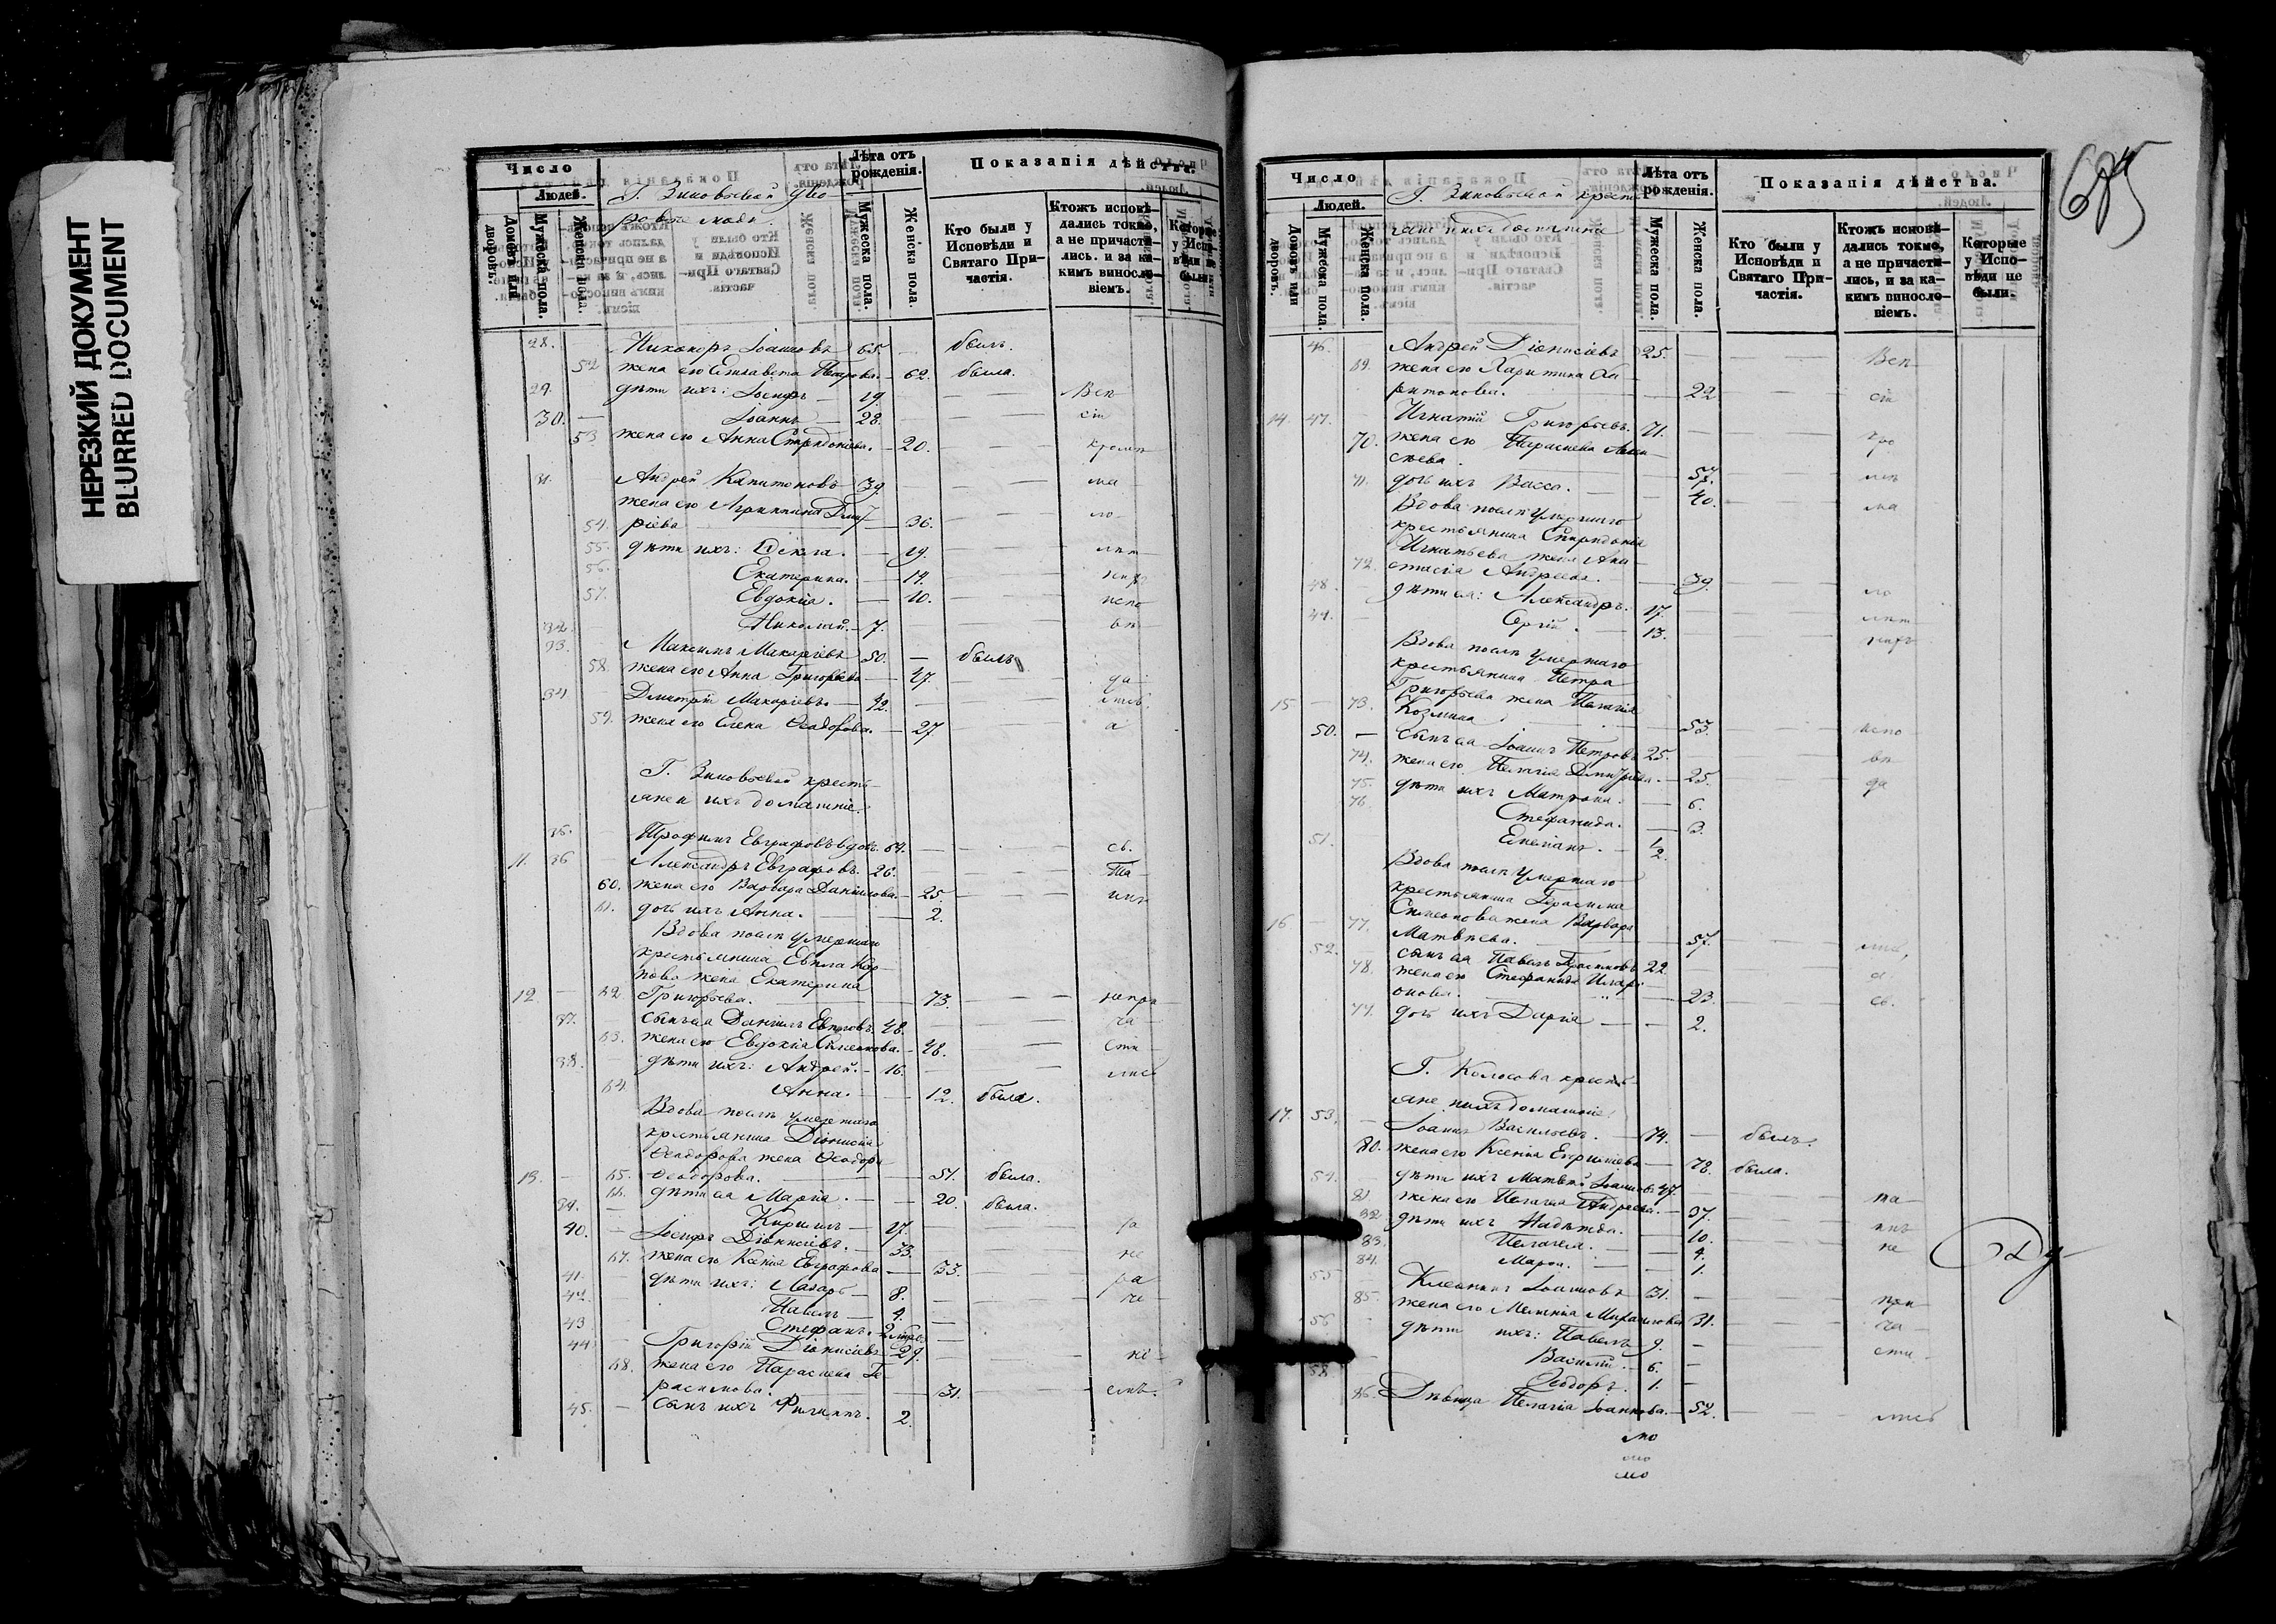 НЕРЕЗКИЙ ДОКУМЕНТ
BLURRED DOCUMENT
Число
Людей.
Домовъ или дворовъ.
Мужеска пола.
Женска пола.
Г. Зиновьевой дво-
ровые люди
Лѣта отъ рожденія.
Мужеска пола.
Женска пола.
Показанія дѣйства.
Кто были у Исповѣди и Святаго Причастія.
Ктожъ исповѣдались токмо, а не причастились. и за какимъ винословіемъ.
Которые у Исповѣди не были.
28. Никаноръ Іоанновъ 65. былъ.
52 жена его Елисавета Петрова 62. была.
29. дѣти ихъ: Іосифъ 19.
30. Іоаннъ 28.
53 жена его Анна Спиридоніева. 20.
31. Андрей Капитоновъ 39.
жена его Агриппина Димит
54. ріева 36.
55. дѣти ихъ: Ѳекла. 19.
56. Екатерина. 14.
57. Евдокія. 10.
32. Николай. 7.
33. Максимъ Макаріевъ 50. былъ
58. жена его Анна Григорьева 47.
34 Димитрій Макаріевъ. 42.
59. жена его Елена Ѳеодорова. 27.
Г. Зиновьевой кресть-
яне и ихъ домашніе.
35. Трофимъ Евграфовъ вдов. 64.
11. 36 Александръ Евграфовъ. 26.
60. жена его Варвара Даніилова 25.
61. дочь ихъ Анна. 2.
Вдова послѣ умершаго
крестьянина Евпла Кар-
пова жена Екатерина
12. 62 Григорьева. 73.
37. сынъ ея Даніилъ Евпловъ. 48.
63. жена его Евдокія Симеонова. 48.
38. дѣти ихъ: Андрей. 16.
64. Анна. 12. была.
Вдова послѣ умершаго
крестьянина Діонисія
Ѳеодорова жена Ѳеодора
13. 65. Ѳеодорова. 51. была.
66. дѣти ея Марія. 20. была.
39. Кириллъ 27.
40. Іосифъ Діонисіевъ. 33.
67. жена его Ксенія Евграфова 33.
41. дѣти ихъ: Лазарь 8.
42. Павелъ 4.
43 Стефанъ.
44 Григорій Діонисіевъ 29.
68. жена его Параскева Ге-
расимова. 31.
45. сынъ ихъ Филиппъ. 2.
Число
Людей.
Домовъ или дворовъ.
Мужеска пола.
Женска пола.
Г. Зиновьевой кресть
яне и ихъ домашніе
Лѣта отъ рожденія.
Мужеска пола.
Женска пола.
Показанія дѣйства.
Кто были у Исповѣди и Святаго Причастія.
Ктожъ исповѣдались токмо, а не причастились, и за какимъ винословіемъ.
Которые у Исповѣди не были.
46. Андрей Діонисіевъ 25.
69. жена его Харитина Ха-
ритонова. 22
14. 47. Игнатій Григорьевъ. 71.
70. жена его Параскева Алек-
сѣева. 57.
71. дочь ихъ Васса. 40.
Вдова послѣ умершаго
крестьянина Спиридонія
Игнатьева жена Ана-
72. стасія Андреева. 39.
48 дѣти ея: Александръ. 17.
49. Сергій. 13.
Вдова послѣ умершаго
крестьянина Петра
Григорьева жена Пелагія
15 73. Козмина 53.
50. сынъ ея Іоаннъ Петровъ 25.
74. жена его Пелагія Димитріева. 25.
75. дѣти ихъ Матрона. 6.
76. Стефанида. 3.
51. Емеліанъ. 1/2.
Вдова послѣ умершаго
крестьянина Герасима
Симеонова жена Варвара
16 77. Матвѣева. 57.
52. сынъ ея Павелъ Герасимовъ 22.
78. жена его Стефанида Илларі-
онова. 23.
79. дочь ихъ Дарія 2.
Г. Колосова кресть-
яне и ихъ домашніе
17. 53. Іоаннъ Васильевъ. 74. былъ.
80. жена его Ксенія 78. была.
54. дѣти ихъ Матвѣй Іоанновъ 47.
81 жена его Пелагея Андреева. 37.
82 дѣти ихъ Надежда. 10.
83. Пелагея. 4.
84. Марѳа. 1.
55 Іоанновъ 31.
85. жена его Меланія Михайлова 31.
56 дѣти ихъ: Павелъ 9.
Василій. 6.
58 Ѳеодоръ. 1.
86. Дѣвица Пелагія Іоаннова. 52.